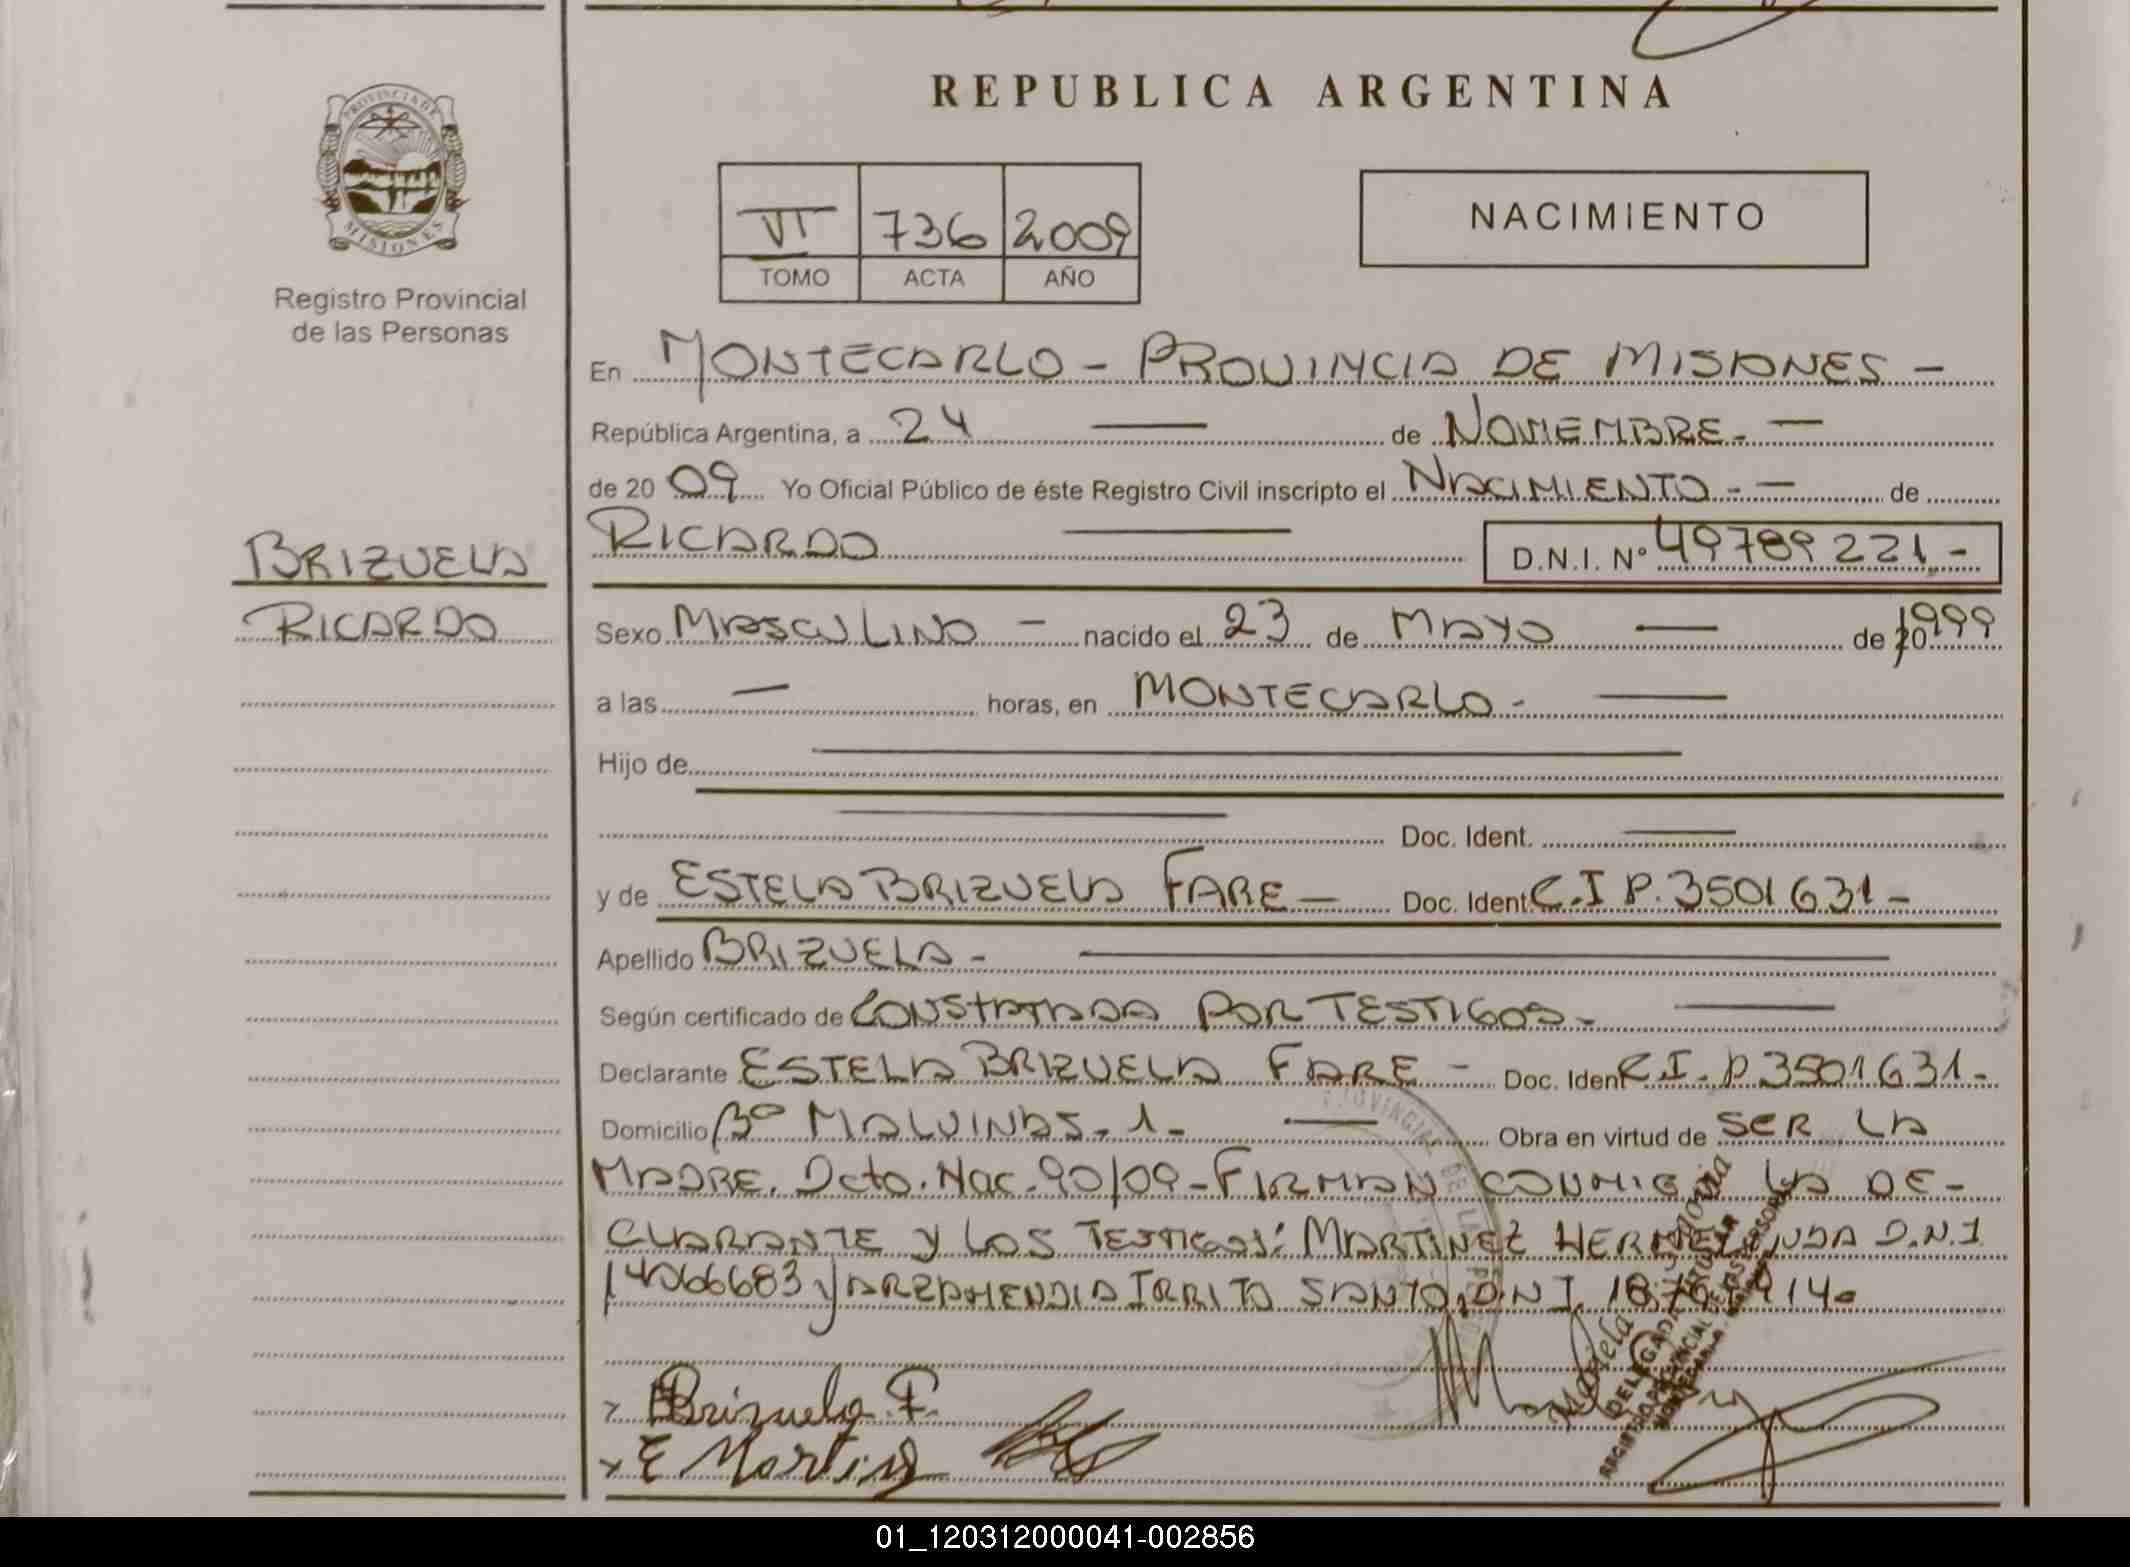 PROVINCIA DE
MISIONES
Registro Provincial
de las Personas
BRIZUELA
RICARDO
REPUBLICA ARGENTINA
VI 736 2009
TOMO ACTA AÑO
NACIMIENTO
En MONTECARLO - PROVINCIA DE MISIONES -
República Argentina, a 24 — de NOVIEMBRE. —
de 20 09 Yo Oficial Público de éste Registro Civil inscripto el NACIMIENTO - — de
RICARDO — D.N.I. Nº 49789221.-
Sexo MASCULINO - nacido el 23 de MAYO — de 1999
a las — horas, en MONTECARLO - —
Hijo de —
— Doc. Ident. —
y de ESTELA BRIZUELA FARE — Doc. Ident. C.I P. 3501631 -
Apellido BRIZUELA - —
Según certificado de CONSTATADA POR TESTIGOS. —
Declarante ESTELA BRIZUELA FARE - Doc. Ident C.I. P 3501631-
Domicilio Bº MALVINAS. 1. — Obra en virtud de SER LA
MADRE. Dcto. Nac. 90/09 - FIRMAN CONMIG LA DE-
CLARANTE Y LOS TESTIGOS: MARTINEZ D.N.I
14066683 y ARZAMENDIA IRRITO SANTO D.N.I.
Brizuela F.
E Martinez
01_120312000041-002856